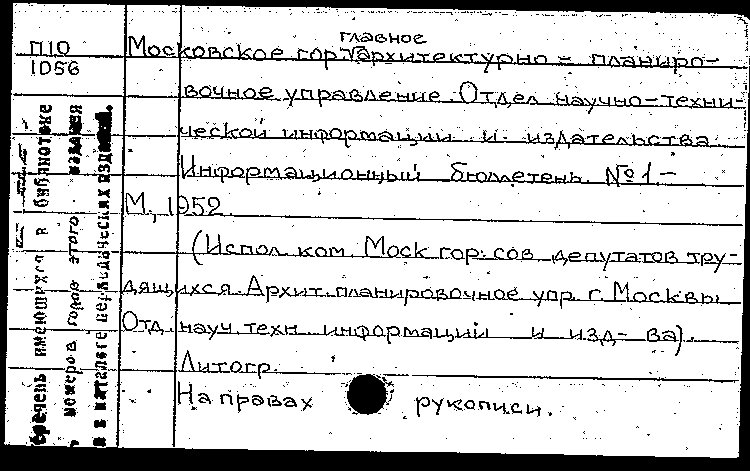 П10
1056
главное
Московское гор. архитектурно - планиро-
вочное управление. Отдел научно-техни-
ческой информации и издательства
Информационный бюллетень №1-
М., 1952.
(Испол ком. Моск гор. сов депутатов тру-
дящихся. Архит. планировочное упр. г. Москвы
Отд. науч. техн. информации и изд-ва).
Литогр.
На правах рукописи.
перечень имеющихся в библиотеке
номеров этого издания
в каталоге периодических изданий.